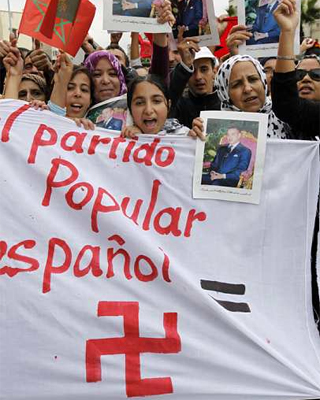 l partido
Popular
español
=